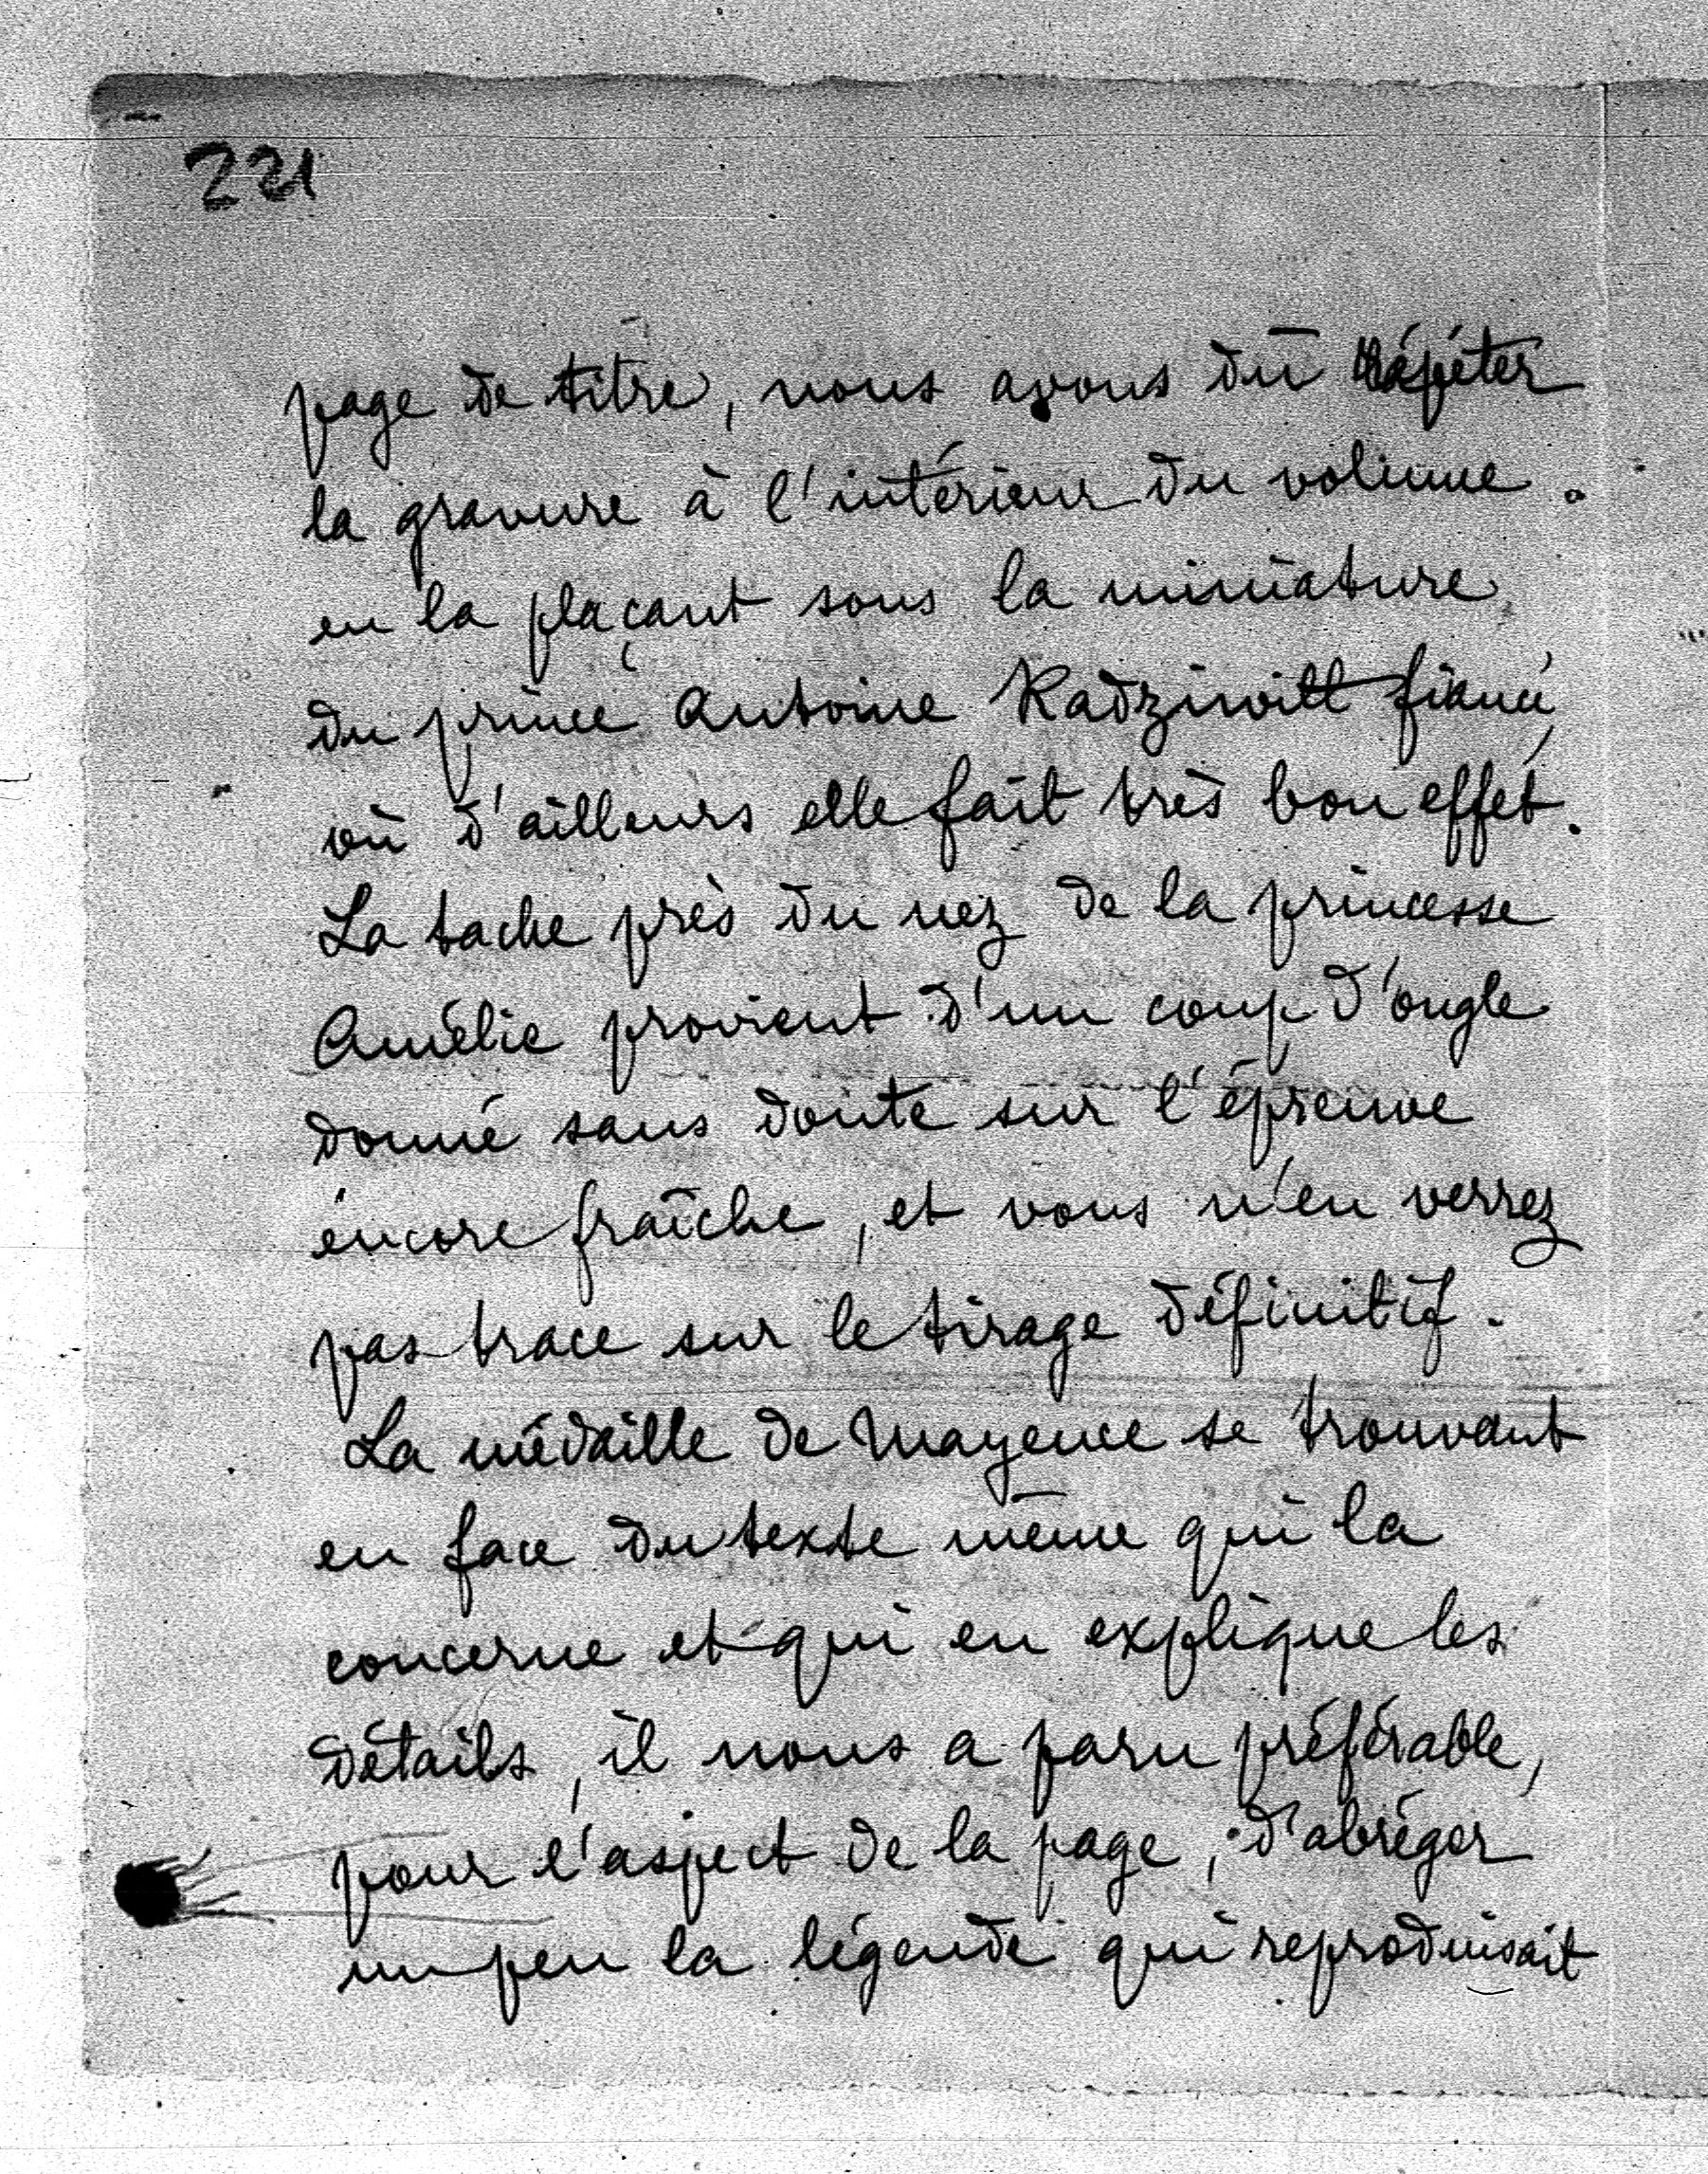 221
page de titre, nous avons dû répéter
la gravure à l'intérieur du volume.
en la plaçant sous la miniature
du prince Antoine Radziwill fiancé,
où d'ailleurs elle fait très bon effet.
La tache près du nez de la princesse
Amélie provient d'un coup d'ongle
donné sans doute sur l'épreuve
encore fraîche, et vous n'en verrez
pas trace sur le tirage définitif.
La médaille de Mayence se trouvant
en face du texte même qui la
concerne et qui en explique les
détails, il nous a paru préférable,
pour l'aspect de la page, d'abréger
un peu la légende qui reproduisait